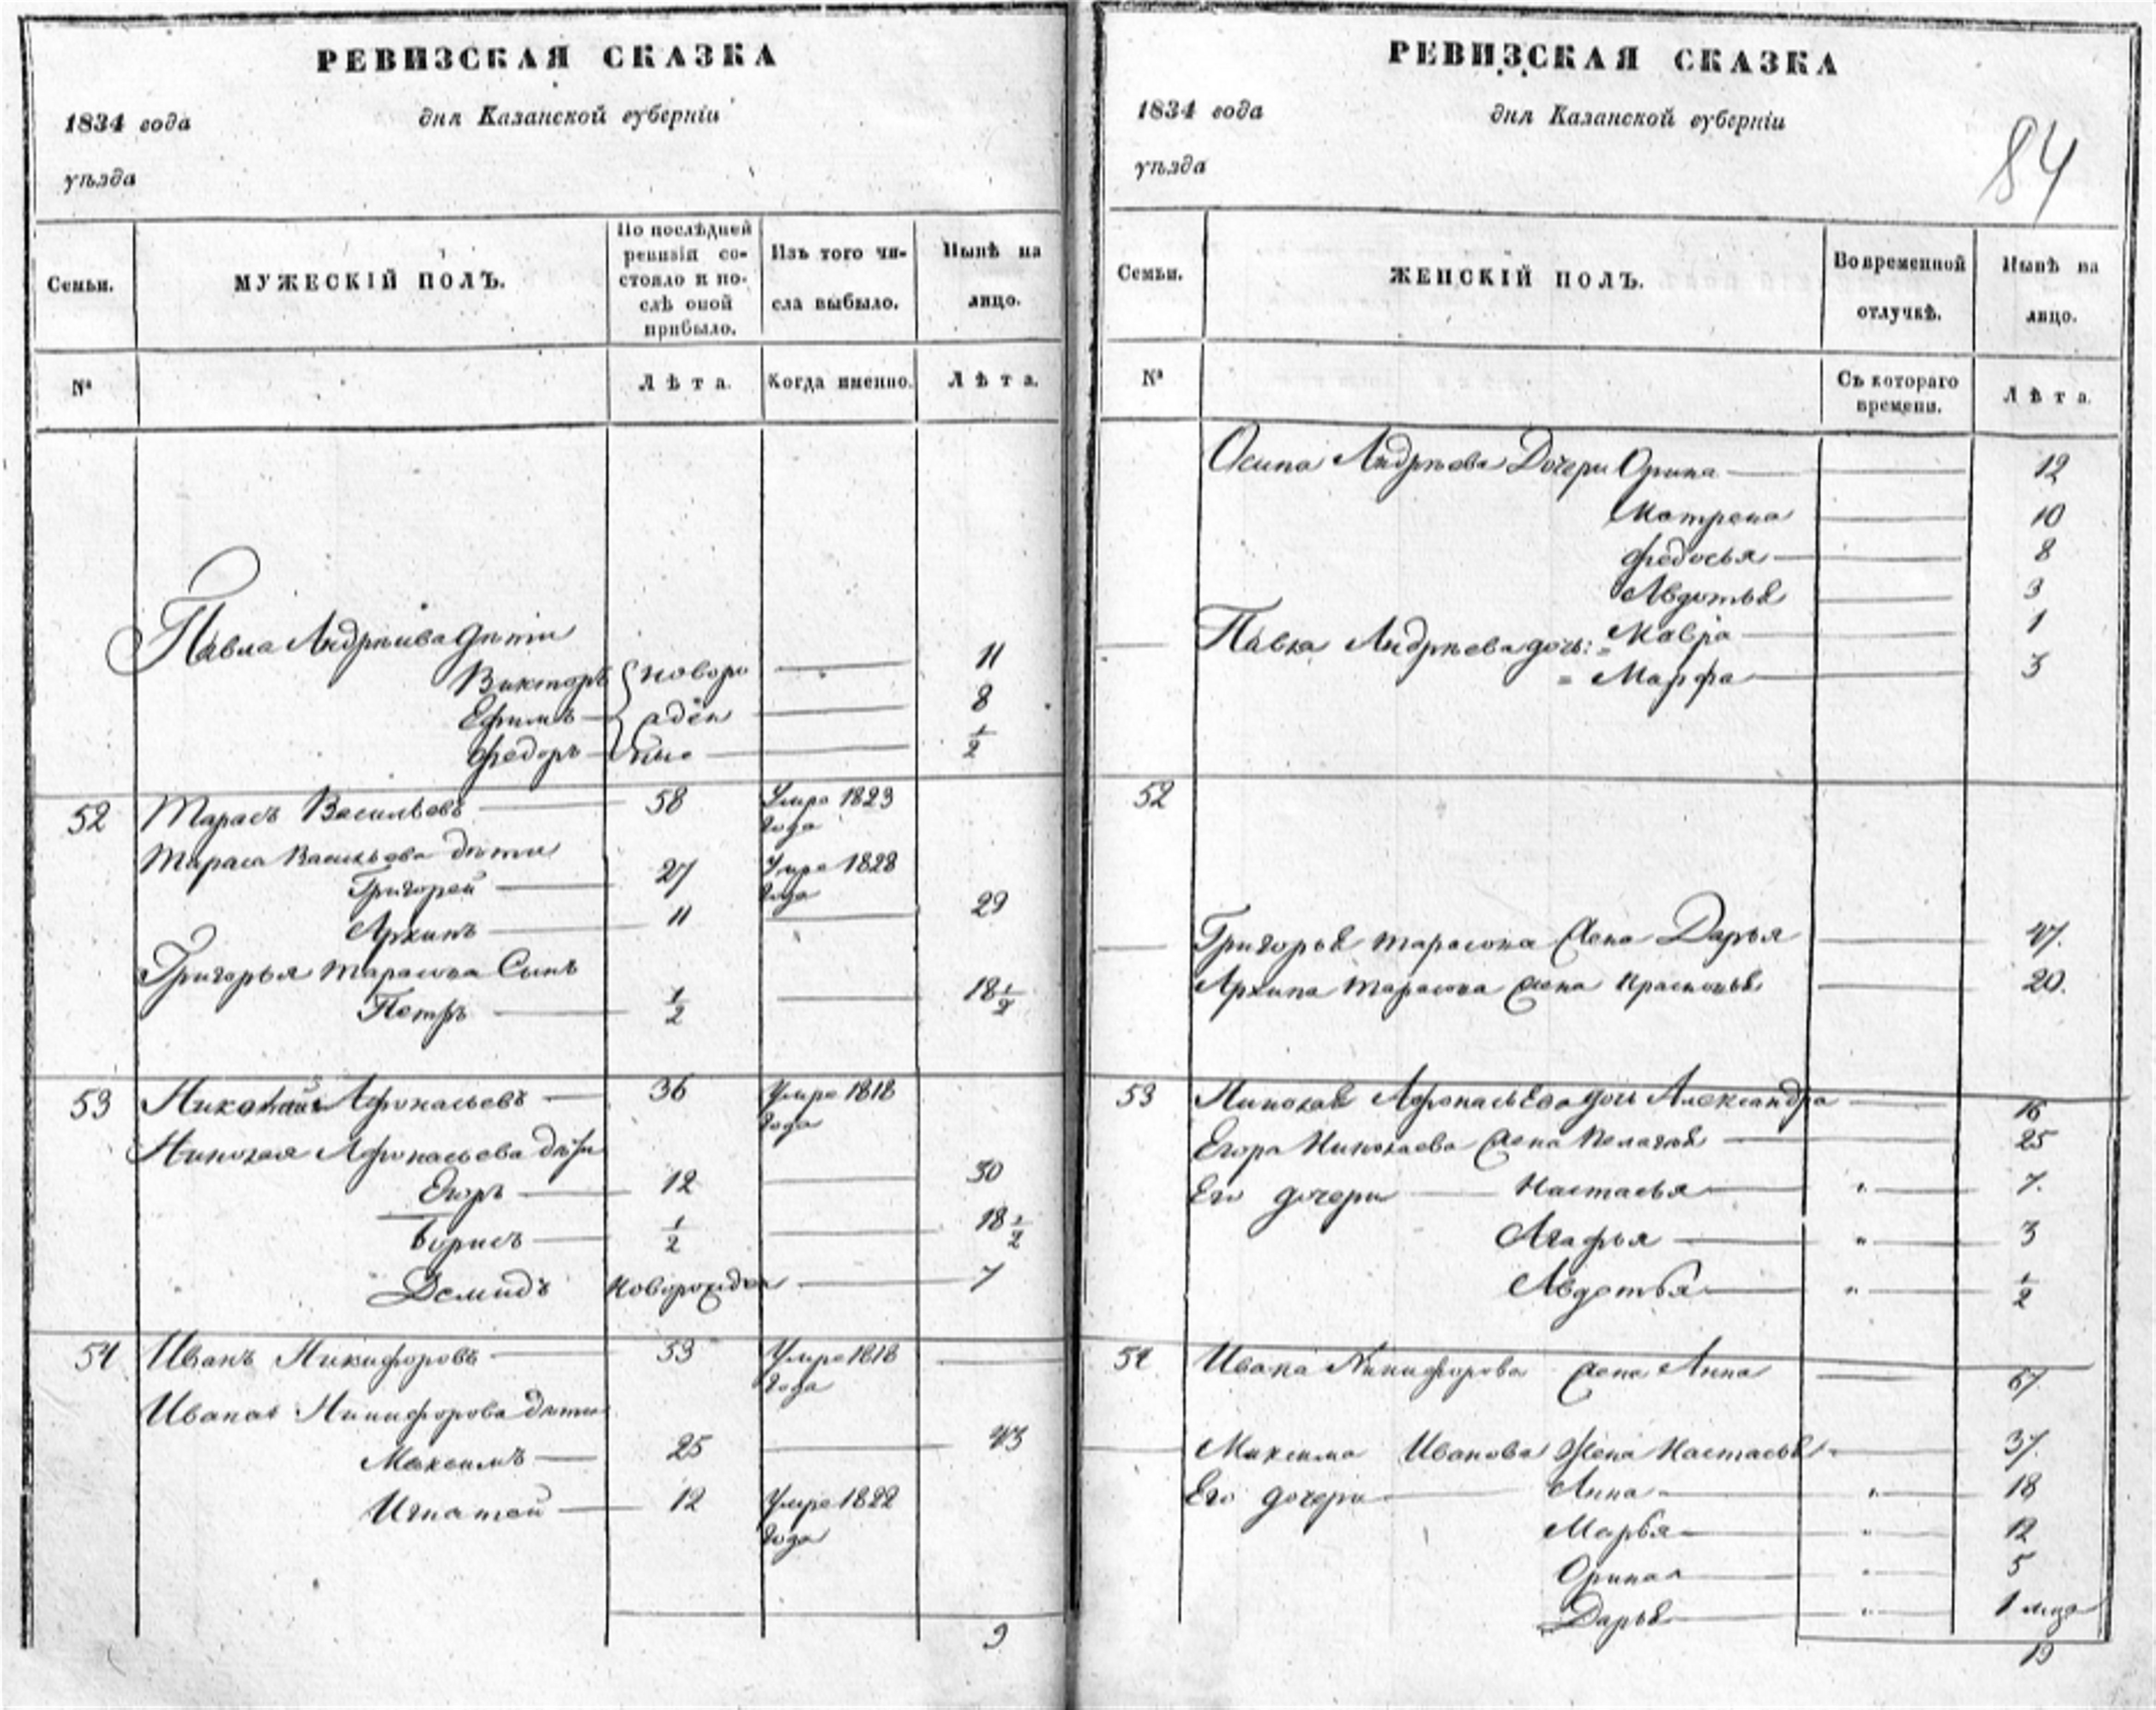 РЕВИЗСКАЯ СКАЗКА
1834 года дня Казанской губерніи
уѣзда
Семьи. МУЖЕСКІЙ ПОЛЪ. По послѣдней ревизіи состояло и послѣ оной прибыло. Изъ того числа выбыло. Нынѣ на лицо.
№ Лѣта. Когда именно. Лѣта.
Павла Андрѣива дѣти
Викторъ новоро 11
Ефимъ жден 8
Федоръ ные 1/2
52 Тарасъ Васильевъ 58 Умре 1823
года
Тараса Васильева дѣти
Григорей 27 Умре 1828
года
Архипъ 11 29
Григорья Тарасова Сынъ
Петръ 1/2 18 1/2
53 Николай Афонасьевъ 36 Умре 1818
года
Николая Афонасьева дѣти
Егоръ 12 30
Борисъ 1/2 18 1/2
Демидъ новорожден 7
54 Иванъ Никифоровъ 53 Умре 1818
года
Ивана Никифорова дѣти
Максимъ 25 43
Игнатей 12 Умре 1822
года
9
РЕВИЗСКАЯ СКАЗКА
1834 года дня Казанской губерніи
84
уѣзда
Семьи. ЖЕНСКІЙ ПОЛЪ. Во временной отлучкѣ. Нынѣ на лицо.
№ Съ котораго времени. Лѣта.
Осипа Андрѣева Дочери Орина 12
Матрена 10
Федосья 8
Авдотья 3
Павла Андрѣева дочь: Мавра 1
Марфа 3
52
Григорья Тарасова Жена Дарья 47.
Архипа Тарасова Жена 20.
53 Николая Афонасьева дочь Александра 16
Егора Николаева Жена Пелагея 25
Его дочери Настасья " 7.
Агафья " 3
Авдотья " 1/2
54 Ивана Никифорова Жена Анна 67
Максима Иванова Жена Настасья 37.
Его дочери Анна " 18
Марья " 12
Орина " 5
Дарья " 1
19